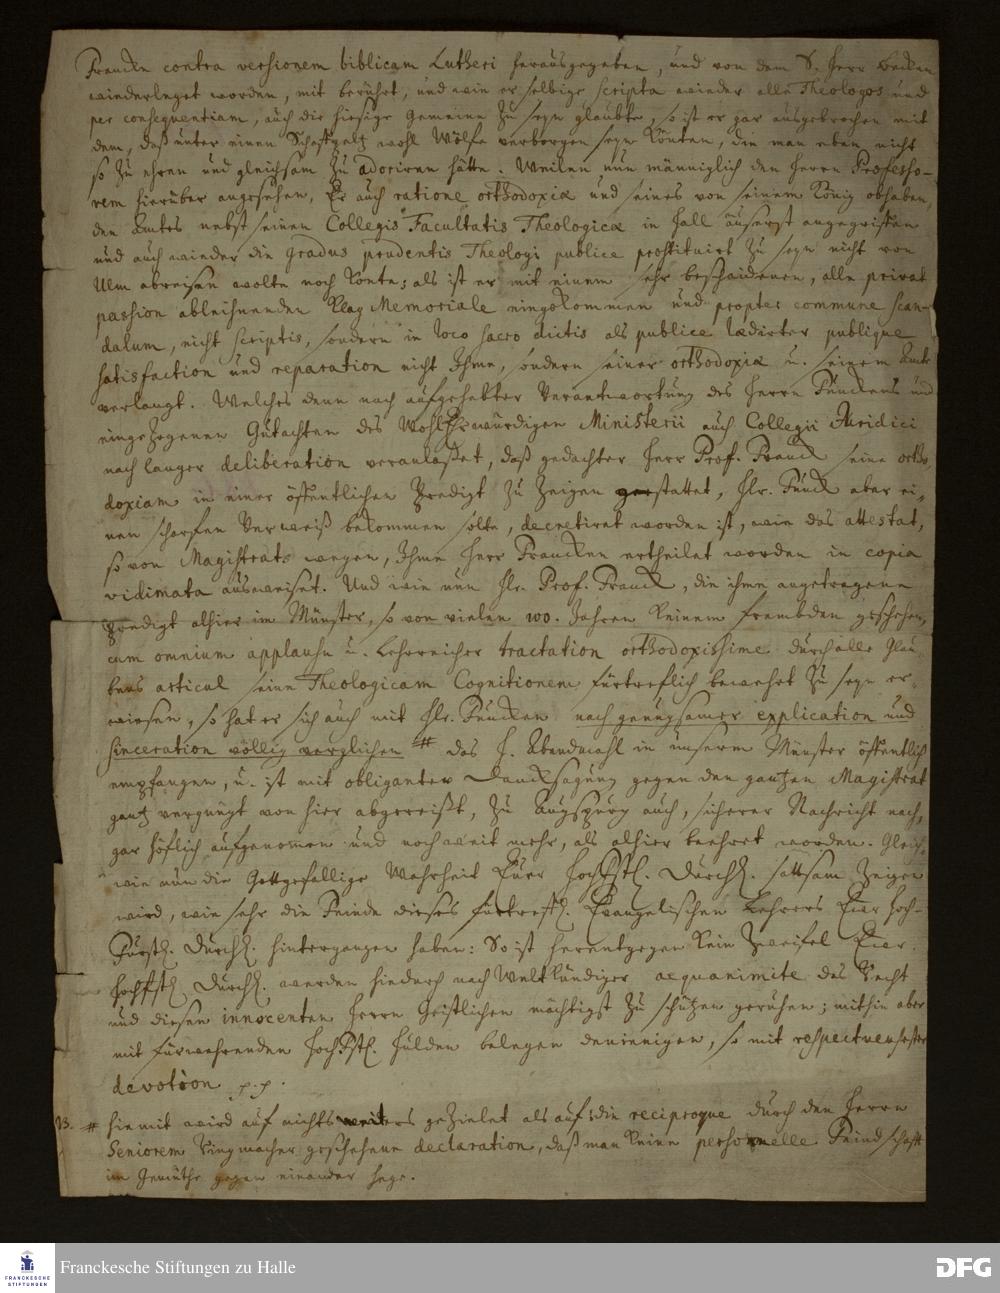 Francken contra versionem biblicam Lutheri herausgegeben, und von dem S. Herr Becken
wiederleget worden, mit berührt, und wie er selbige scripta wieder alle Theologos und
per consequentiam, auch die hiesige Gemeine zu seyn glaubte, so ist er gar ausgebrochen mit
dem, daß unter einen Schaffpeltz wohl Wölfe verborgen seyn könten, die man eben nicht
so zu ehren und gleichsam zu adoriren hätte. Weilen nun männiglich den Herrn Professo-
rem hierüber angesehen, Er auch ratione orthodoxiæ und seines von seinem König obhaben,
den Amtes nebst seinen Collegis Facultatis Theologicæ in Hall äuserst angegriffen
und auch wieder die gradus prudentis Theologi publice prostituirt zu seyn nicht von
Ulm abreisen wolte noch konte; als ist er mit einem sehr bescheidenen, alle privat
passion ableinenden Klag Memoriale eingekommen und propter commune scan-
dalum, nicht scriptis, sondern in loco sacro dictis als publice lædirter publique
satisfaction und reparation nicht Ihme, sondern seiner orthodoxiæ u. seinem Amt
verlangt. Welches denn nach aufgesetzter Verantwortung des Herrn Funckens und
eingezogenen Gutachten des WohlEhrwürdigen Ministerii auch Collegii Juridici
nach langer deliberation veranlaßet, daß gedachter Herr Prof. Franck seine ortho
doxiam in einer öffentlichen Predigt zu zeigen gestattet, Hr. Funck aber ei-
nen scharfen Verweiß bekommen solte, decretiret worden ist, wie das attestat,
so von Magistrats wegen, Ihme Herr Francken ertheilet worden in copia
vidimata ausweiset. Und wie nun Hr. Prof. Franck, die ihme angetragene
Predigt alhier im Münster, so von vielen 100. Jahren keinem frembden geschehen,
cum omnium applausu u. Lehrreicher tractation orthodoxissime durch alle Glau-
bens articul seine Theologicam Cognitionem fürtreflich bewehrt zu seyn er-
wiesen, so hat er sich auch mit Hr. Funcken nach genugsamer explication und
sinceration völlig verglichen # das H. Abendmahl in unserm Münster öffentlich
empfangen, u. ist mit obliganter Dancksagung gegen den gantzen Magistrat
gantz vergnügt von hier abgereißt, zu Augspurg auch, sicherer Nachricht nach,
gar höflich aufgenommen und noch weit mehr, als alhier beehret worden. Gleich-
wie nun die Gottgefällige Wahrheit Euer HochFstl. Durchl. sattsam zeigen
wird, wie sehr die Feinde dieses fürtreffl. Evangelischen Lehrers Euer Hoch-
Fürstl. Durchl. hintergangen haben: So ist herentgegen kein Zweifel Euer
Hochfstl. Durchl. werden hiedurch nach Weltkündiger aequanimite das Recht
und diesen innocenten Herrn Geistlichen mächtigst zu schützen geruhen; mithin aber
mit fürwehrenden HochFstl. Hulden belegen denienigen, so mit respectuensester
devotion p. p.
NB. # hiemit wird auf nichts weiters gezielet als auf die reciproque durch den Herrn
Seniorem Ringmacher geschehene declaration, daß man keine personelle Feindschafft
im Gemüthe gegen einander hege.
Franckesche Stiftungen zu Halle
FRANCKESCHE
STIFTUNGEN
DFG